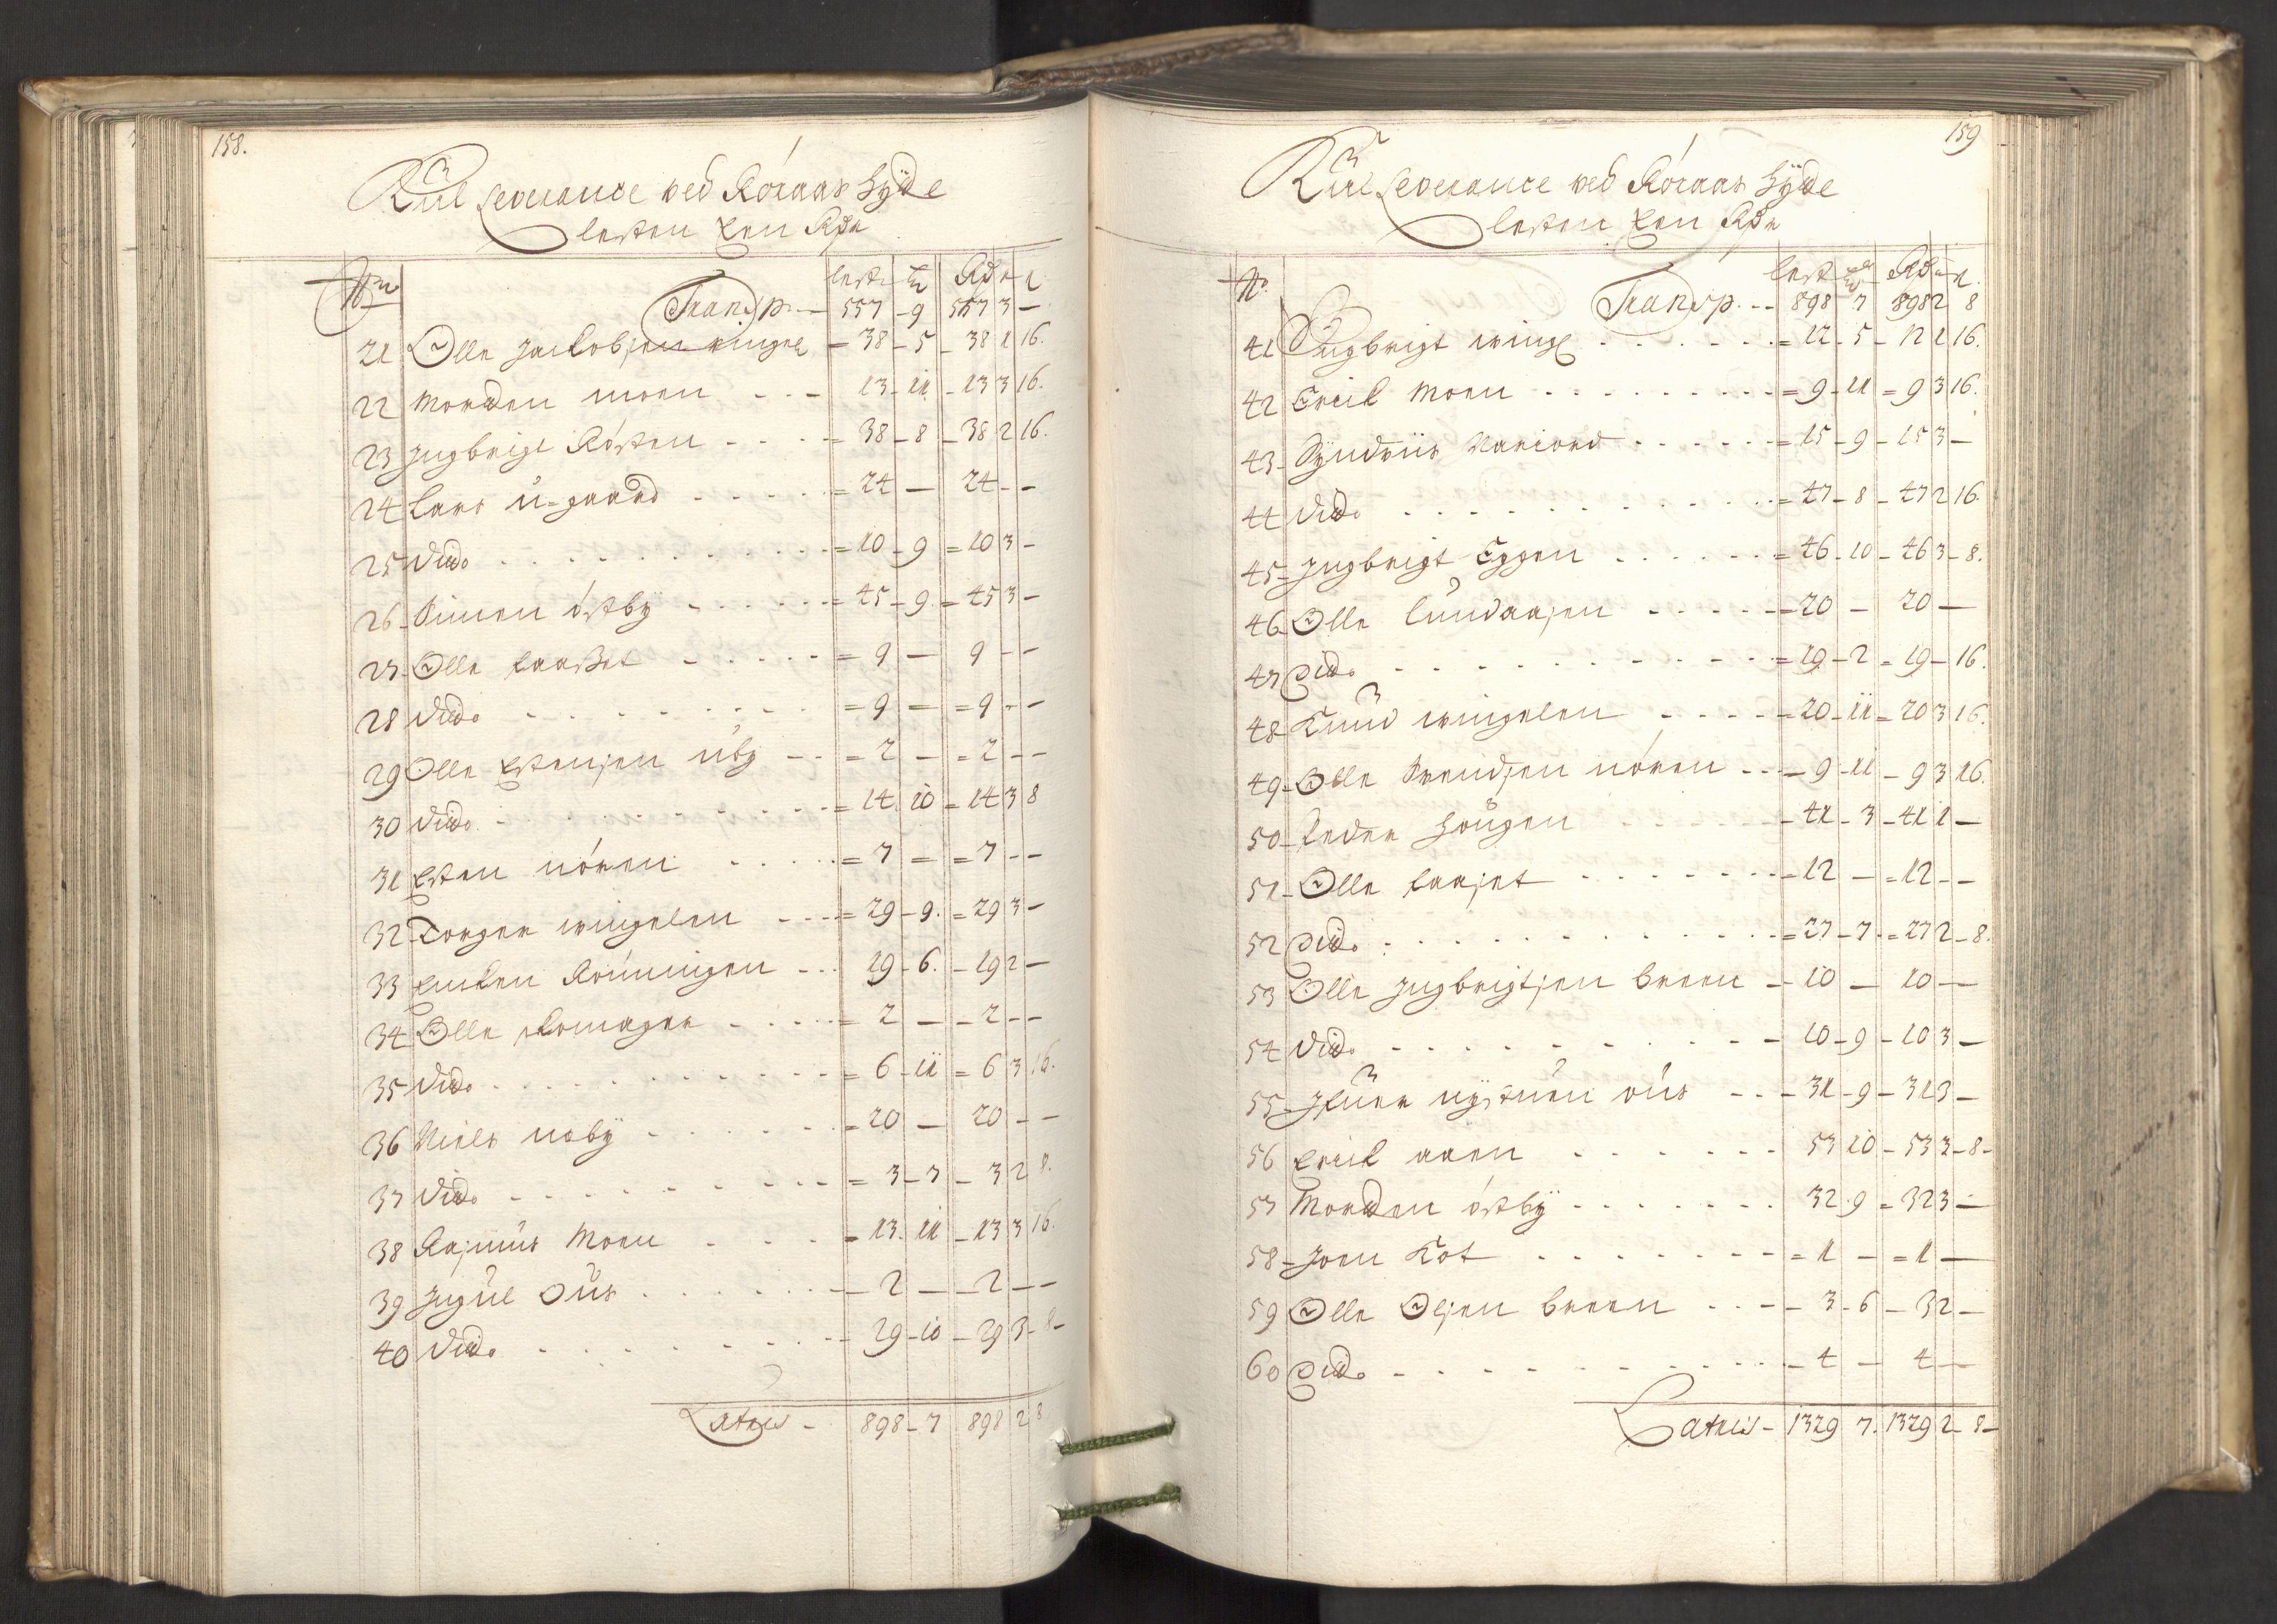 158.
Kul Leverance ved Röraas Hÿtte
lesten Een Rdr
No lest tr Rdr
Transp. - 557 - 9 557 3 -
21 Olle Jacobsen vingel - 38 - 5 - 38 1 16.
22 Morten moen - - - 13 - 11 - 13 3 16.
23 Ingbrigt Rösten - - - - 38 - 8 - 38 2 16.
24 Lars u-gaard - - - - - = 24 - 24 - -
25 dido . . . = 10 - 9 = 10 3 -
26 Simen östbÿ - - - - - = 45 - 9 = 45 3 -
27 Olle Laasset - - - - - = 9 - 9 - -
28 dido - - - = 9 - = 9 - -
29 Olle Estensen übÿ - - = 2 - = 2 - -
30 dido - - - = 14 10 = 14 3 8
31 Esten nören . . . . = 7 - = 7 - -
32 Torger wingelen - - - = 29 - 9. = 29 3 -
33 Rönningen - - . 19 - 6. - 19 2 -
34 Olle - - - - = 2 - - 2 - -
35 dido - - - = 6 - 11 = 6 3 16.
36 Niels nobÿ - - - - = 20 - 20 - -
37 dido - - - = 3 - 7 - 3 2 8.
38 Rasmus Moen - - - - 13. 11 - 13 3 16.
39 Ingul Ous . . . - 2 - - 2 - -
40 dido - - - 29 - 10 - 29 3 - 8 -
Lateris - 898 - 7 898 2 8
159
Kul Leverance ved Röraas Hÿtte
lesten Een Rdr
No lest tr Rdr
Transp. - - 898 7 898 2 8
41 Ingbrigt wingel . . . = 12 - 5 - 12 1 16.
42 Erick Moen . . . = 9 - 11 = 9 3 16.
43 Sÿndriis Nariord - - - = 15 - 9 - 15 3 -
44 dido . . . = 47 - 8 - 47 2 16.
45 Ingbrigt Eggen . . . = 46 - 10 - 46 3 - 8.
46 Olle Lundaasen - - - - 20 - 20 -
47 dido - - - = 19 - 2 = 19 - 16.
48 Knud wingelen - - - - 20 - 11 = 20 3 16.
49 Olle Svendsen nören - - - 9 - 11 - 9 3 16.
50 Peder Hougen - 41 - 3 - 41 1 -
51 Olle Laaset - - - = 12 - = 12 - -
52 dido . . . = 27 - 7 - = 27 2 - 8.
53 Olle Ingbrigtsen breen - 10 - 10 -
54 dido - - - 10 - 9 - 10 3 -
55 nÿstuen ous - - - 31 - 9 - 31 3 -
56 Erick aaen - - - 53 10 - 53 3 - 8 -
57 Morten östbÿ . . . 32. 9 = 32 3 -
58 Joen Kot . . . = 1 - = 1 -
59 Olle Olsen breen - - - - 3 - 6 - 3 2 -
60 dido - - - 4 - 4 -
Lateris - 1329 7. 1329 2 - 8 -